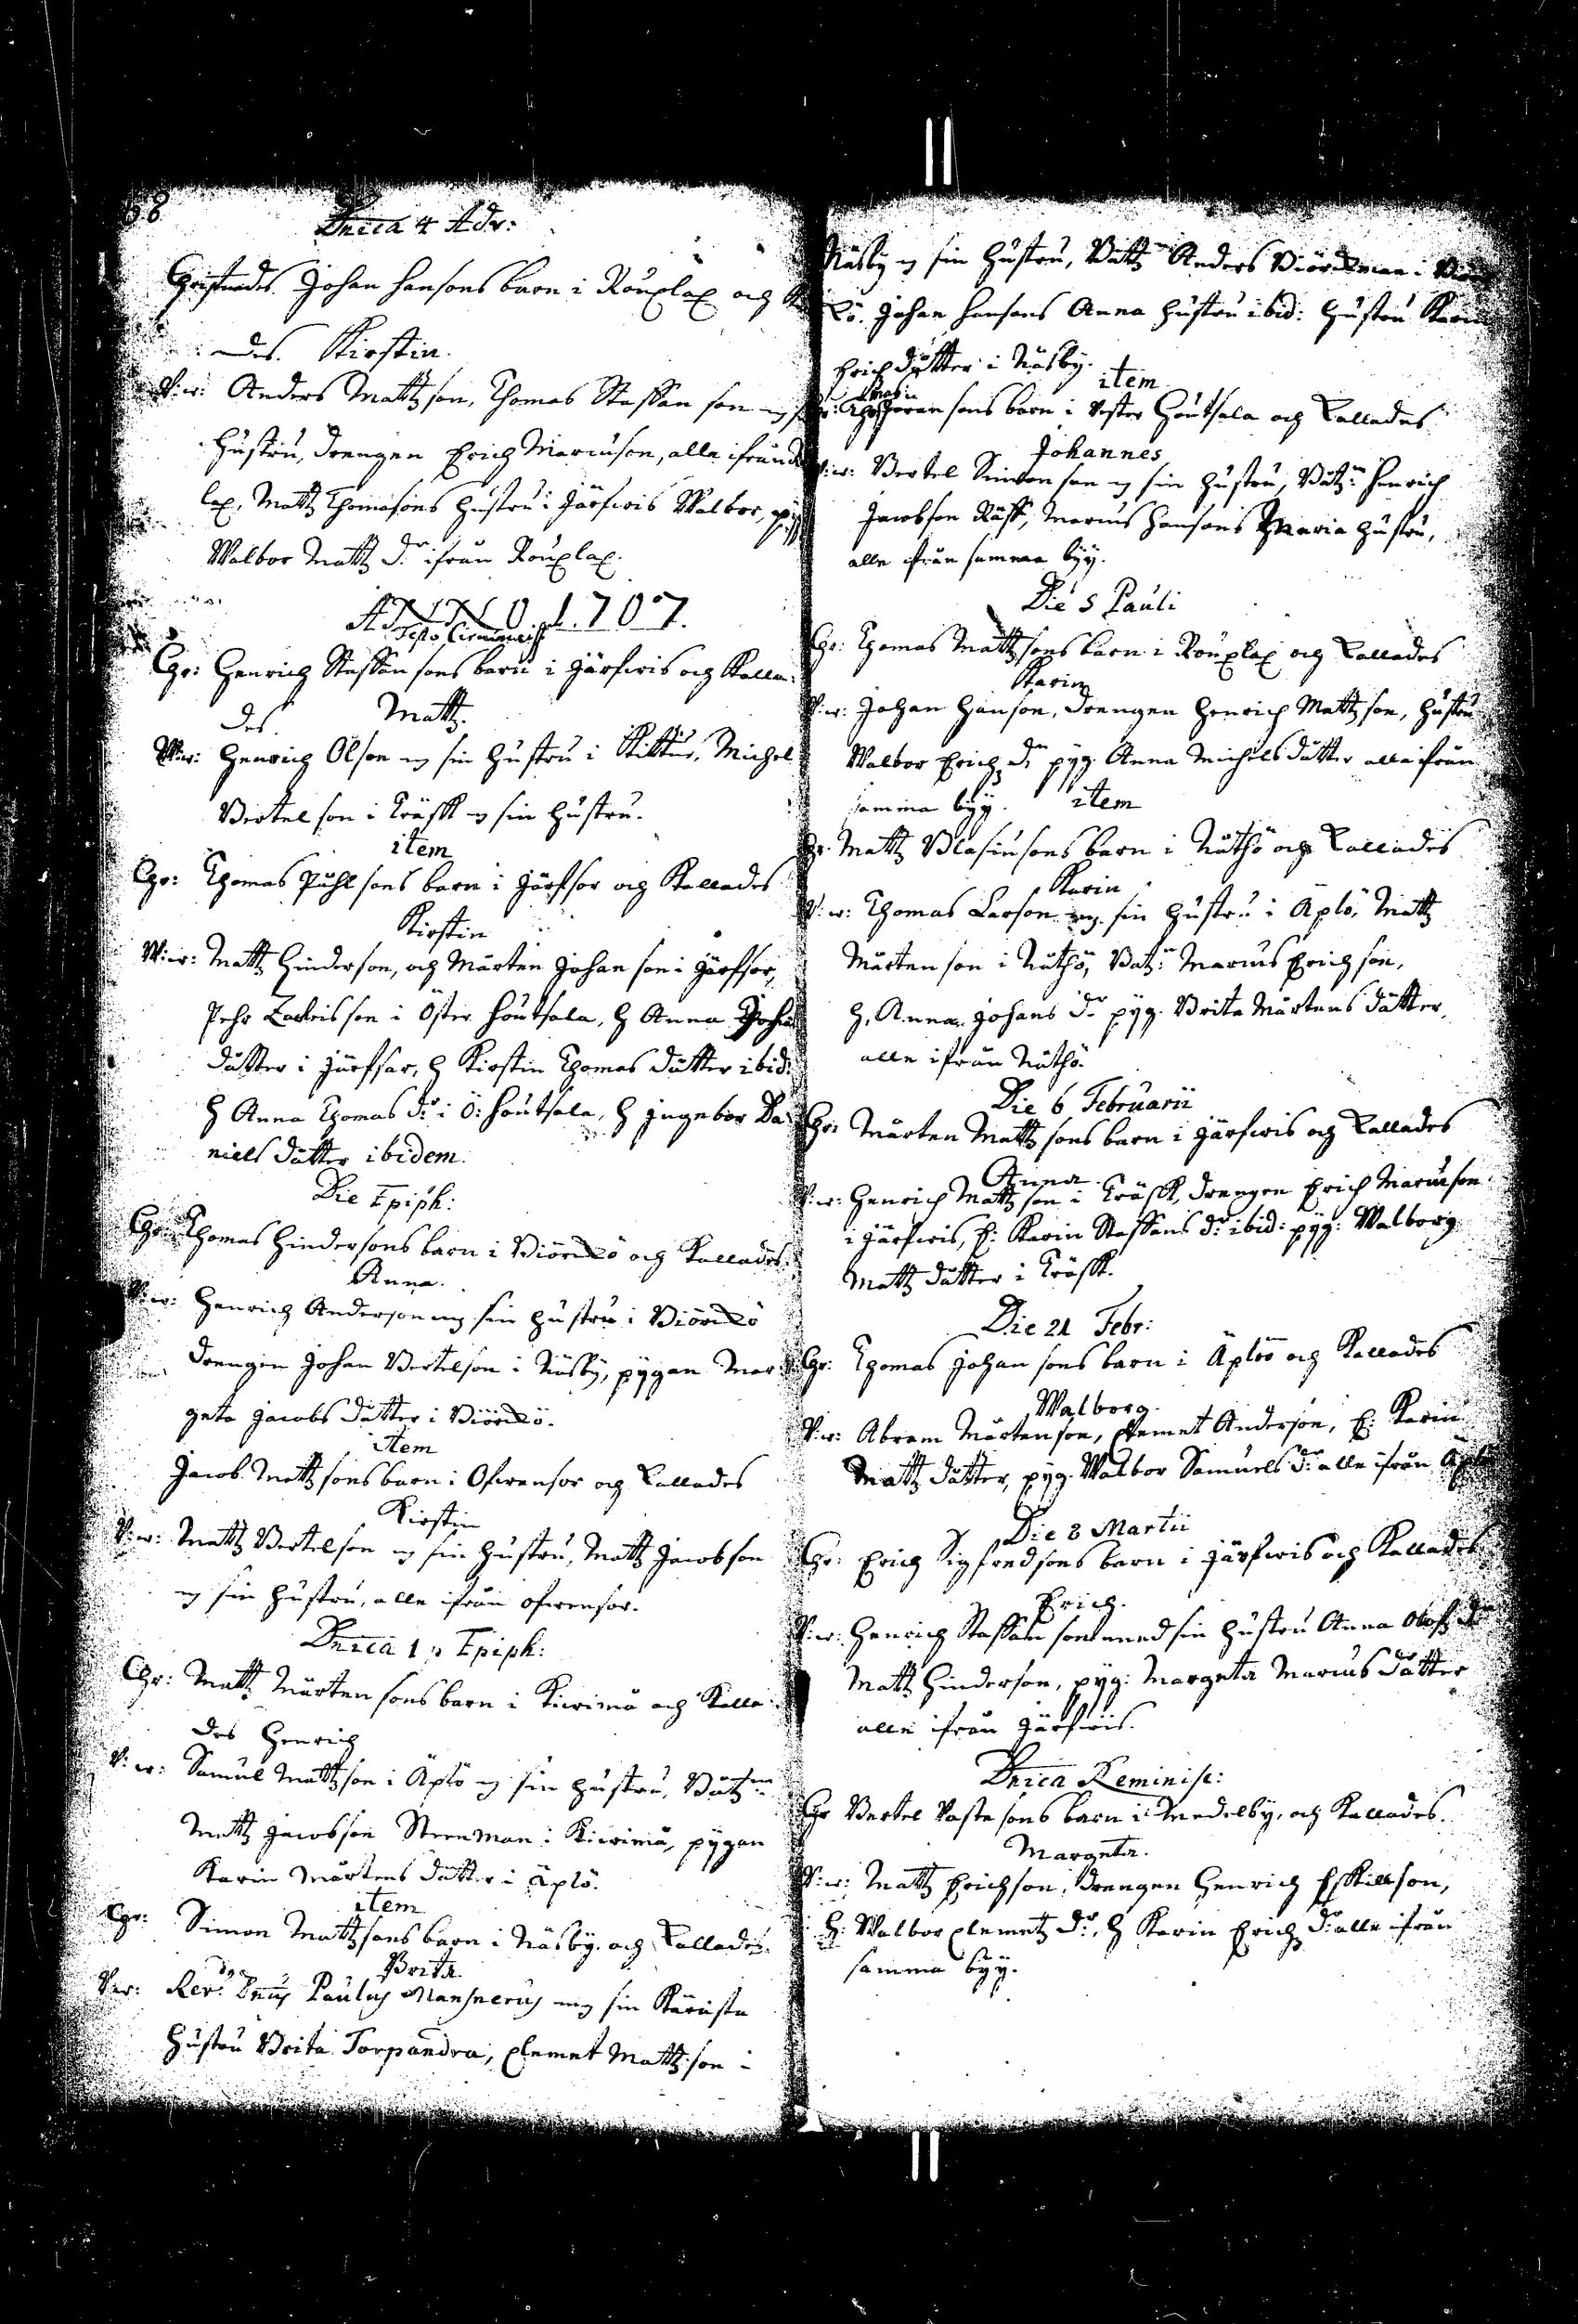 68
Dnica 4 Adv:
Christnades Johan Hansons barn i Rouxlax och Ka
des. Kirstin.
V.w: Anders Mattzson, Thomas Staffan son m sin
Hustru, drengen Erich Marcuson, alle ifrån Roux
lax, Mattz Thomasons hustru i Järfwis Walbor, pig
Walbor Mattz dr ifrån Rouxlax.
ANNO. 1707.
Festo Circumcis:
Chr: Henrich Staffan sons barn i Järfwis och Kalla-
des Mattz.
W:w: Henrich Olson m sin hustru i Kittuis, Michel
Bertel son i Träsk m sin hustru.
item
Chr: Thomas Påhl sons barn i Järfsor och Kallades
Kirstin
W:w: Mattz Hinderson, och Mårten Johan son i Järfsor,
Pehr Zachrisson i Öster Houtsala, H Anna Joha
dåtter i Järfsor, H Kirstin Thomas dåtter ibid:
H Anna Thomas dr: i Ö: Houtsala, H Ingebor Da-
niels dåtter ibidem.
Die Epiph:
Chr: Thomas Hindersons barn i Biörckö och Kallades
Anna.
V:w: Henrich Anderson m sin hustru i Biörckö
drengen Johan Bertelson i Näsby, pygan Mar-
geta Jacobs dåtter i Biörckö.
item
Jacob Mattz sons barn i Ofwensor och Kallades
Kirstin
V:w: Mattz Bertelson m sin hustru, Mattz Jacobson
m sin hustru, alle ifrån ofwensor.
Dnica 1 p Epiph:
Chr: Mattz Mårten sons barn i Kiwimå och Kalla-
des Henrich
V:w: Samul Mattz son i Äplö m sin hustru, Båtzm:
Mattz Jacobson Steenman i Kiwimå, pygan
Karin Mårtens dåtter i Äplö.
item
Chr: Simon Mattz sons barn i Näsby och Kallades
Brita
V:w: Rev: Dnus Paulus Mansnerus m sin Käraste
Hustru Brita Torpandra, Clemet Mattz son i
Näsby m sin Hustru, Båtzm Anders Biörckman i Biörc
kö. Johan Hansons Anna hustru ibid: hustru Karin
Erich dåtter i Näsby.
item
Chr: Thomas Jöran sons barn i Wester Houtsala och Kallades
Johannes
V:w: Bertel Simonson m sin Hustru, Båtzm: Henrich
Jacobson Räff, Marcus Hansons Maria hustru,
alle ifrån samma byy.
Die S Pauli
Chr: Thomas Mattz sons barn i Rouxlax och Kallades
Karin
V:w: Johan Hanson, drengen Henrich Mattz son, hustru
Walbor Erichz dr pyg. Anna Michels dåtter alla ifrån
samma byy. item
Chr. Mattz Blasiusons barn i Nåthö och Kallades
Karin
V:w: Thomas Larson m sin hustru i Äplö, Mattz
Mårten son i Nåthö, Batzm: Marcus Erich son,
H. Anna Johans dr pyg. Brita Mårtens dåtter,
alle ifrån Nåthö.
Die 6 Februarii
Chr: Mårten Mattz sons barn i Järfwis och Kallades
Anna
V:w: Henrich Mattz son i Träsk, drengen Erich Marcuson
i Järfwis, H: Karin Staffans dr: ibid: pyg: Walborg
Mattz dåtter i Träsk.
Die 21 Febr:
Chr: Thomas Johan sons barn i Äplöö och Kallades
Walborg.
V:w: Abram Mårtenson, Clemet Anderson, H: Karin
Mattz dåtter, pyg. Walbor Samuels dr: alle ifrån Äplö
Die 8 Martii
Chr: Erich Sigfred sons barn i Järfwis och Kallades
Erich.
V:w: Henrich Staffan son med sin hustru Anna Olofz dr
Mattz Hinderson, pyg: Margeta Marcus dåtter
alle ifrån Järfwis.
Dnica Reminisc:
Chr Bertel Vastesons barn i Medelby, och Kallades.
Margeta.
V:w: Mattz Erichson, drengen Henrich Eskillson,
H: Walbor Clemetz dr:, H Karin Erichz dr: alle ifrån
samma byy.